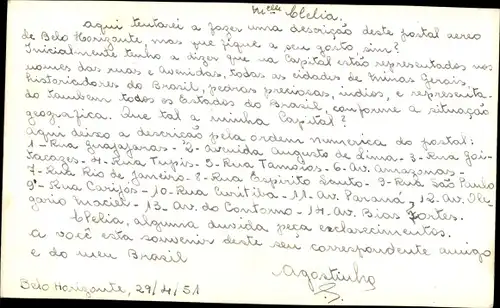 Mlle Clelia,
aqui tentarei a fazer uma descrição deste postal aereo
de Belo Horizonte, mas que fique a seu gosto, sim?
Inicialmente tenho a dizer que na Capital estão representados nos
nomes das ruas e Avenidas, todas as cidades de Minas Gerais,
historiadores do Brasil, pedras preciosas, indios, e representa-
do tambem todos os Estados do Brasil, conforme a situação
geografica. Que tal a minha Capital?
Aqui deixo a descricao pela ordem numerica do postal:
1-Rua Guajajaras-2-Avenida Augusto de Lima-3-Rua Goi-
tacazes-4-Rua Tupis-5-Rua Tamoios-6-Av. Amazonas-
7-Rua Rio de Janeiro-8-Rua Espirito Santo-9-Rua São Paulo
9º-Rua Carijós-10-Rua Curitiba-11-Av. Paraná, 12-Av. Ole-
gario Maciel-13-Av. do Contorno-14-Av. Bias Fortes.
Clelia, alguma duvida peça esclarecimentos.
a você esta souvenir deste seu correspondente amigo
e do meu Brasil
Agostinho
Belo Horizonte, 29/4/51